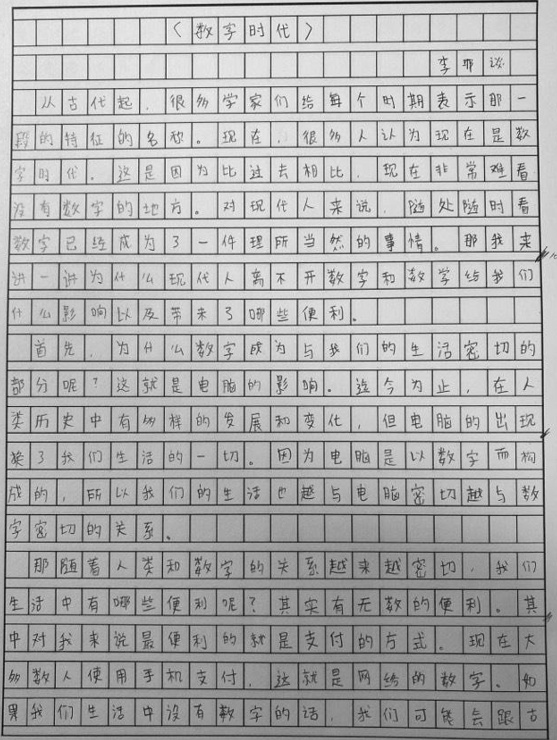 《数字时代》
李耶谈
从古代起，很多学家们给每个时期表示那一
段的特征的名称。现在，很多人认为现在是数
字时代。这是因为比过去相比，现在非常难看
没有数字的地方。对现代人来说，随处随时看
数字已经成为了一件理所当然的事情。那我来
讲一讲为什么现代人离不开数字和数学给我们
什么影响以及带来了哪些便利。
首先，为什么数字成为与我们的生活密切的
部分呢？这就是电脑的影响。迄今为止，在人
类历史中有多样的发展和变化，但电脑的出现
换了我们生活的一切。因为电脑是以数字而构
成的，所以我们的生活也越与电脑密切越与数
字密切的关系。
那随着人类和数字的关系越来越密切，我们
生活中有哪些便利呢？其实有无数的便利。其
中对我来说最便利的就是支付的方式。现在大
多数人使用手机支付，这就是网络的数字。如
果我们生活中没有数字的话，我们可能会跟古